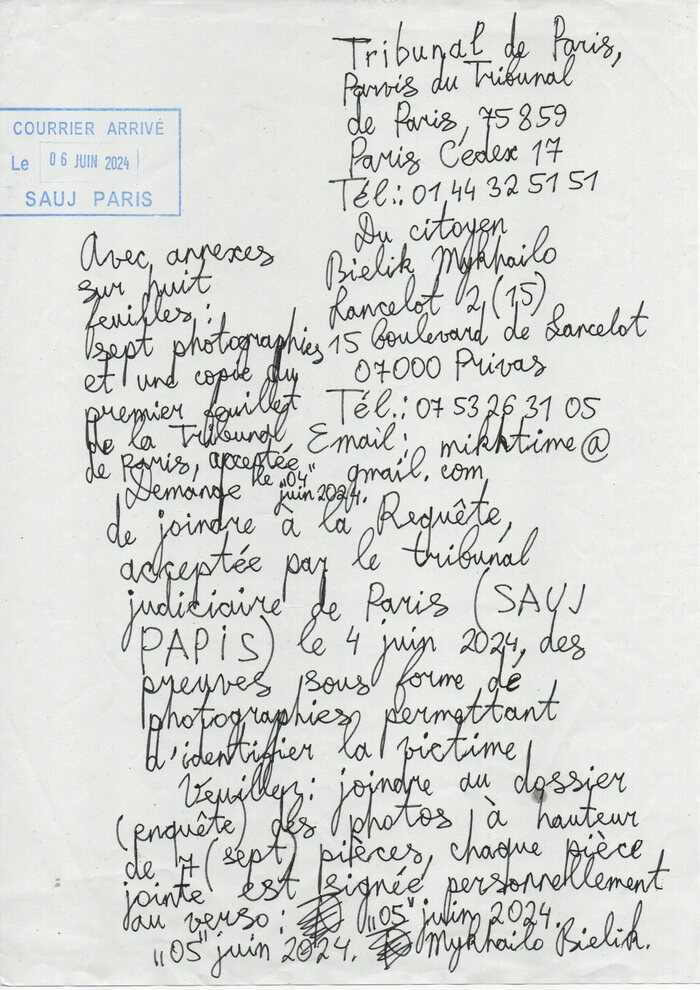 Tribunal de Paris,
Parvis du Tribunal
de Paris, 75859
Paris Cedex 17
Tél.: 01 44 32 51 51
COURRIER ARRIVÉ
Le 06 JUIN 2024
SAUJ PARIS
Du citoyen
Bielik Mykhailo
Lancelot 2 (15)
15 boulevard de Lancelot
07000 Privas
Tél.: 07 53 26 31 05
Email: mikhtime@
gmail.com
Avec annexes
sur huit
feuilles:
sept photographies
et une copie du
premier feuillet
de la Tribunal
de Paris, acceptée
le „04"
juin 2024.
Demande
de joindre à la Requête,
acceptée par le tribunal
judiciaire de Paris (SAUJ
PAPIS) le 4 juin 2024, des
preuves sous forme de
photographies permettant
d'identifier la victime
Veuillez: joindre au dossier
(enquête) des photos à hauteur
de 7 (sept) pièces, chaque pièce
jointe est signée personnellement
au verso: „05" juin 2024.
„05" juin 2024. Mykhailo Bielik.